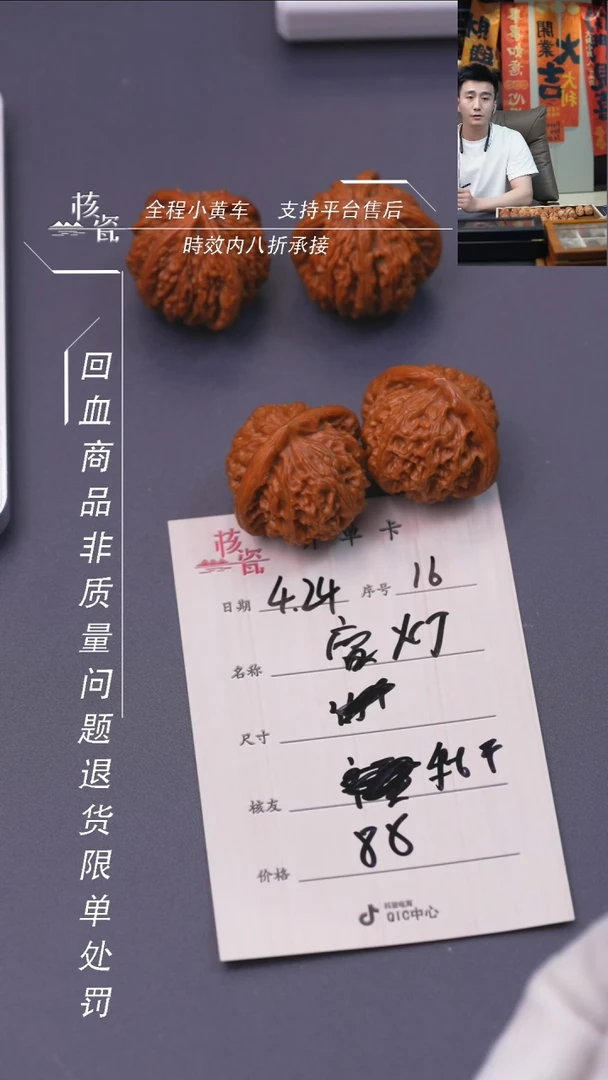 核瓷
全程小黄车 支持平台售后
時效内八折承接
回血商品非质量问题退货限单处罚
事事如意
開業大吉
大利
核瓷 单卡
日期 4.24 序号 16
名称
尺寸
核友
价格 88
抖音电商
QIC中心